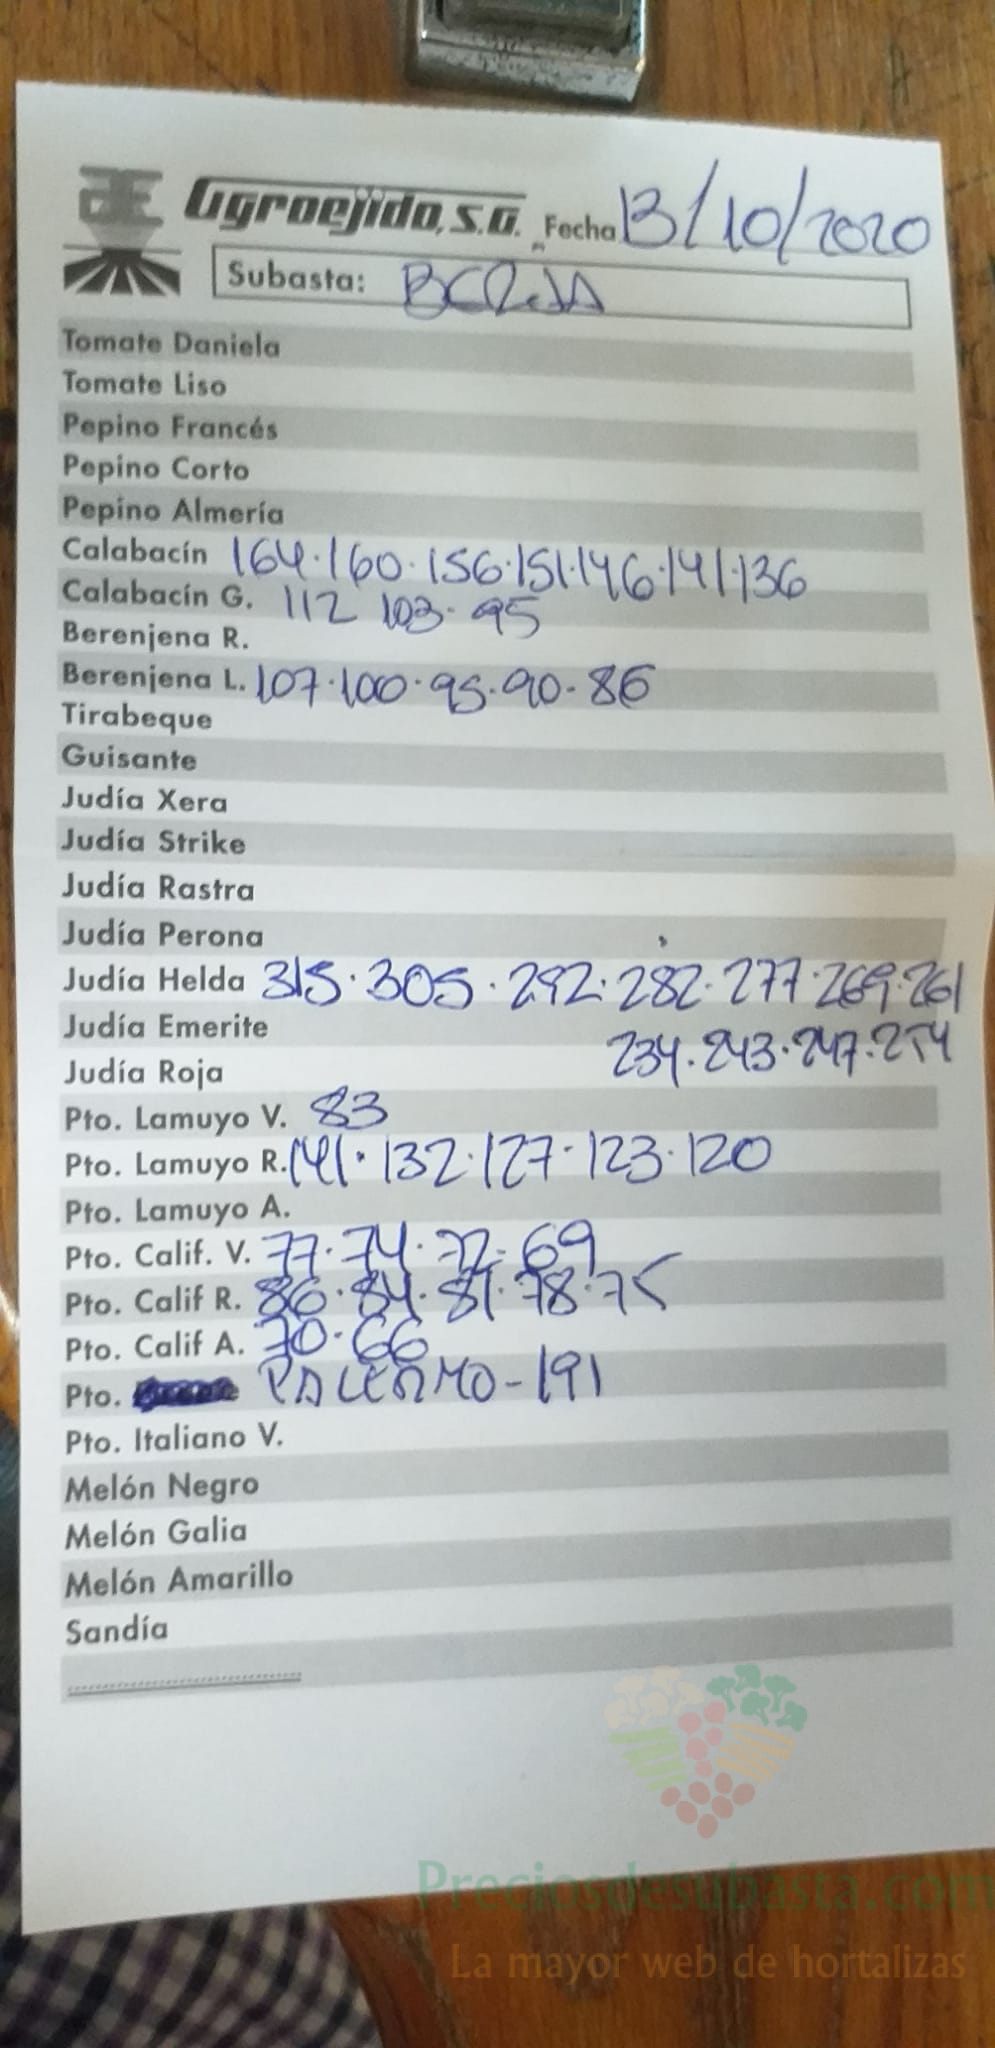 Agroejido, S.A. Fecha 13/10/2020
Subasta: BERJA
Tomate Daniela
Tomate Liso
Pepino Francés
Pepino Corto
Pepino Almería
Calabacín 164·160·156·151·146·141·136
Calabacín G. 112 103·95
Berenjena R.
Berenjena L. 107·100·95·90-86
Tirabeque
Guisante
Judía Xera
Judía Strike
Judía Rastra
Judía Perona
Judía Helda 315·305·292·282·277·269·261
Judía Emerite 234·243·247·254
Judía Roja
Pto. Lamuyo V. 83
Pto. Lamuyo R. 141·132·127·123·120
Pto. Lamuyo A.
Pto. Calif. V. 77·74·72·69
Pto. Calif R. 86·84·81·78·75
Pto. Calif A. 70·66
Pto. PALERMO-191
Pto. Italiano V.
Melón Negro
Melón Galia
Melón Amarillo
Sandía
Preciosdesubasta.com
La mayor web de hortalizas